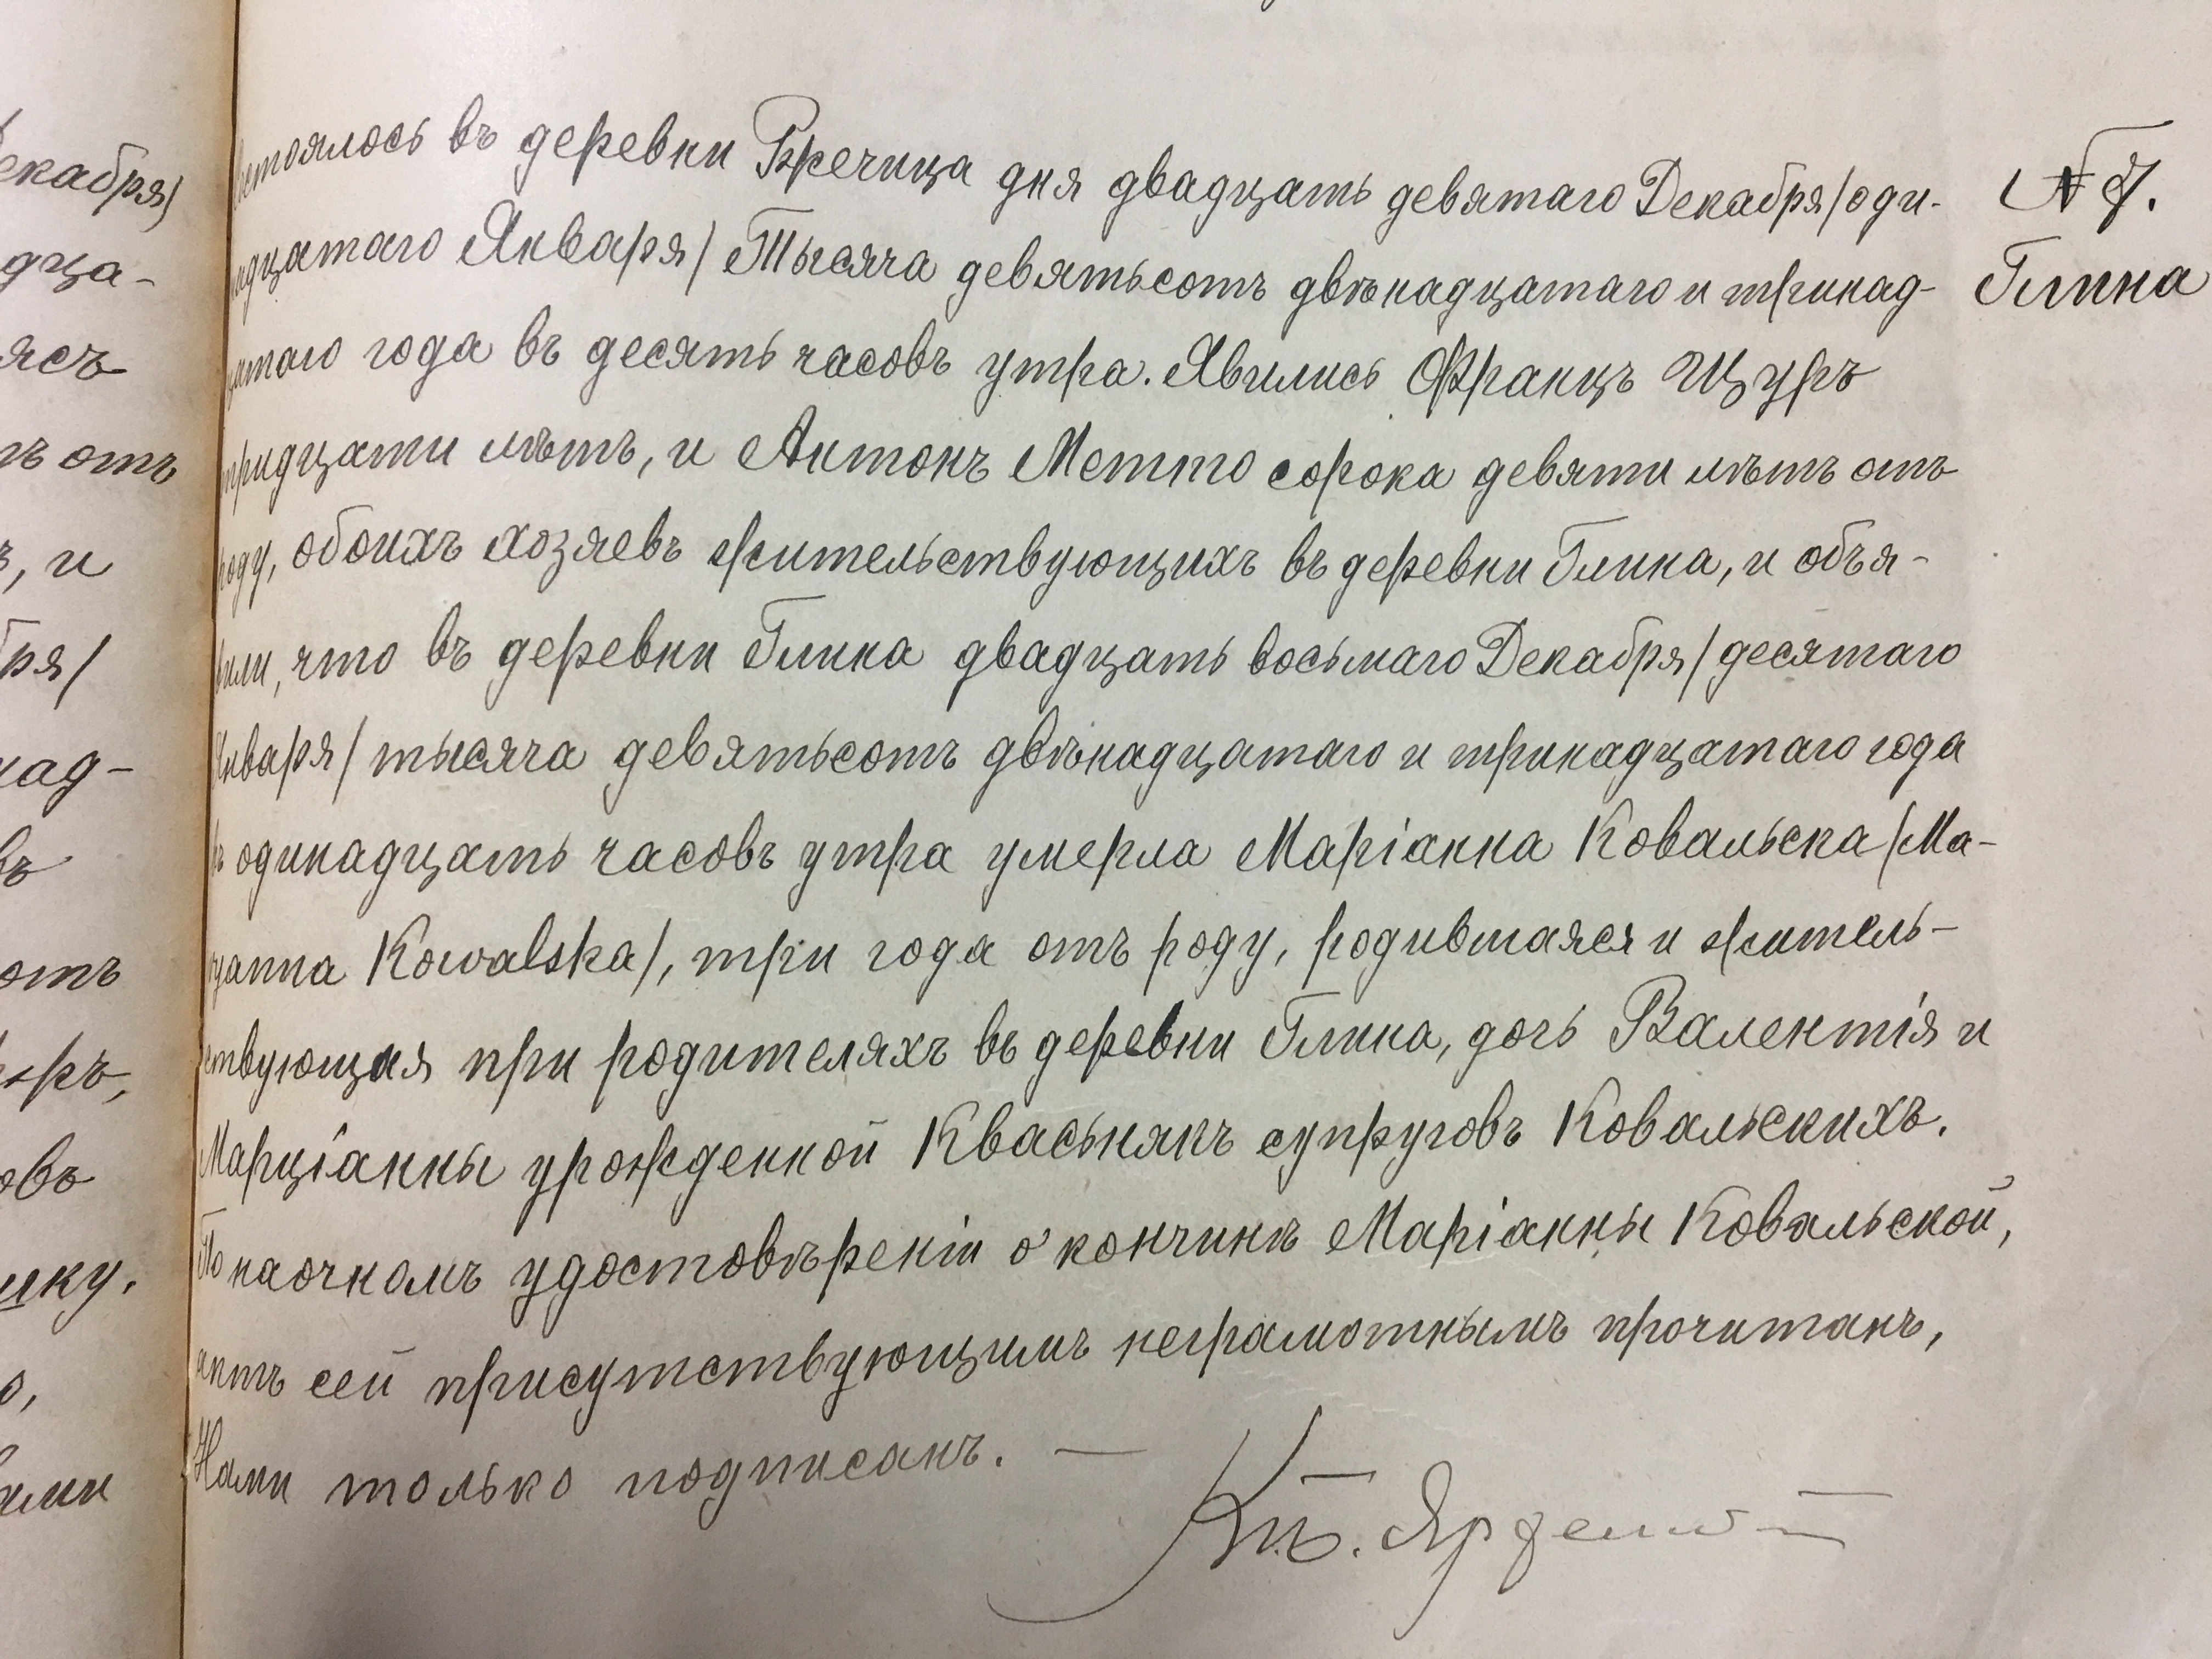 состоялось въ деревни Ржечица дня двадцать девятаго Декабря/оди-
надцатаго Января/ Тысяча девятьсотъ двѣнадцатаго и тринад-
цатаго года въ десять часовъ утра. Явились Францъ Щуръ
тридцати лѣтъ, и Антонъ Метто сорока девяти лѣтъ отъ
роду, обоихъ хозяевъ жительствующихъ въ деревни Глина, и объя-
вили, что въ деревни Глина двадцать восьмаго Декабря/десятаго
Января/ тысяча девятьсотъ двѣнадцатаго и тринадцатаго года
въ одинадцать часовъ утра умерла Маріанна Ковальска/Ma-
ryanna Kowalska/, три года отъ роду, родившаяся и житель-
ствующая при родителяхъ въ деревни Глина, дочь Валентія и
Марціанны урожденной Кваснякъ супруговъ Ковальскихъ.
По наочномъ удостовѣреніи о кончинѣ Маріанны Ковальской,
актъ сей присутствующимъ неграмотнымъ прочитанъ,
Нами только подписанъ. —
Кс.
№ 7.
Глина
екабря/
дца-
ясь
отъ
, и
бря/
над-
въ
отъ
овъ
ику.
ами